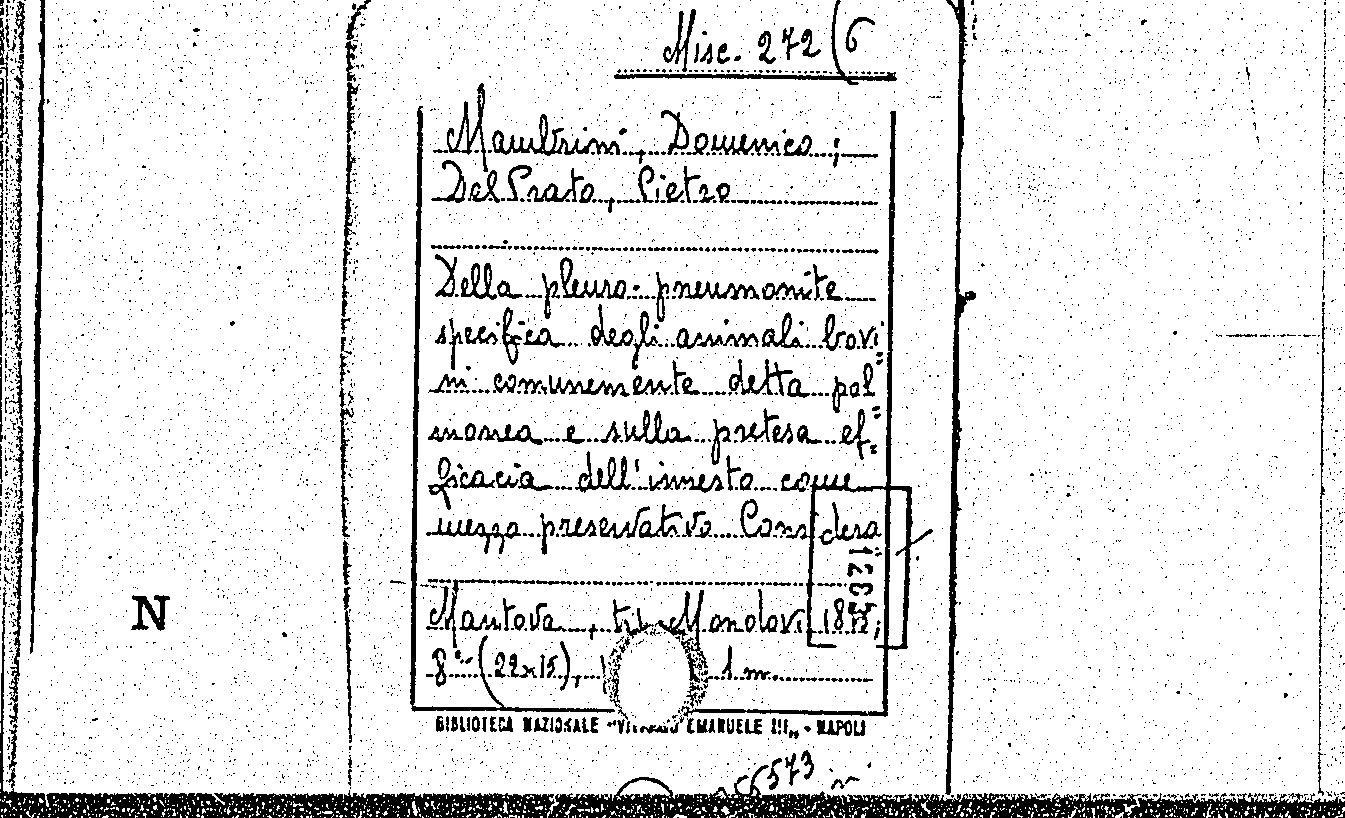 Misc. 272 (6
Mambrini, Domenico;
Del Prato, Pietro
Della pleuro-pneumonite
specifica degli animali bovi=
ni comunemente detta pol=
monea e sulla pretesa ef=
ficacia dell'innesto come
mezzo preservativo Considera
1235
Mantova, tip. Mondovi
8° (22x15), 1 m.
BIBLIOTECA NAZIONALE "VITTORIO EMANUELE III" - NAPOLI
N